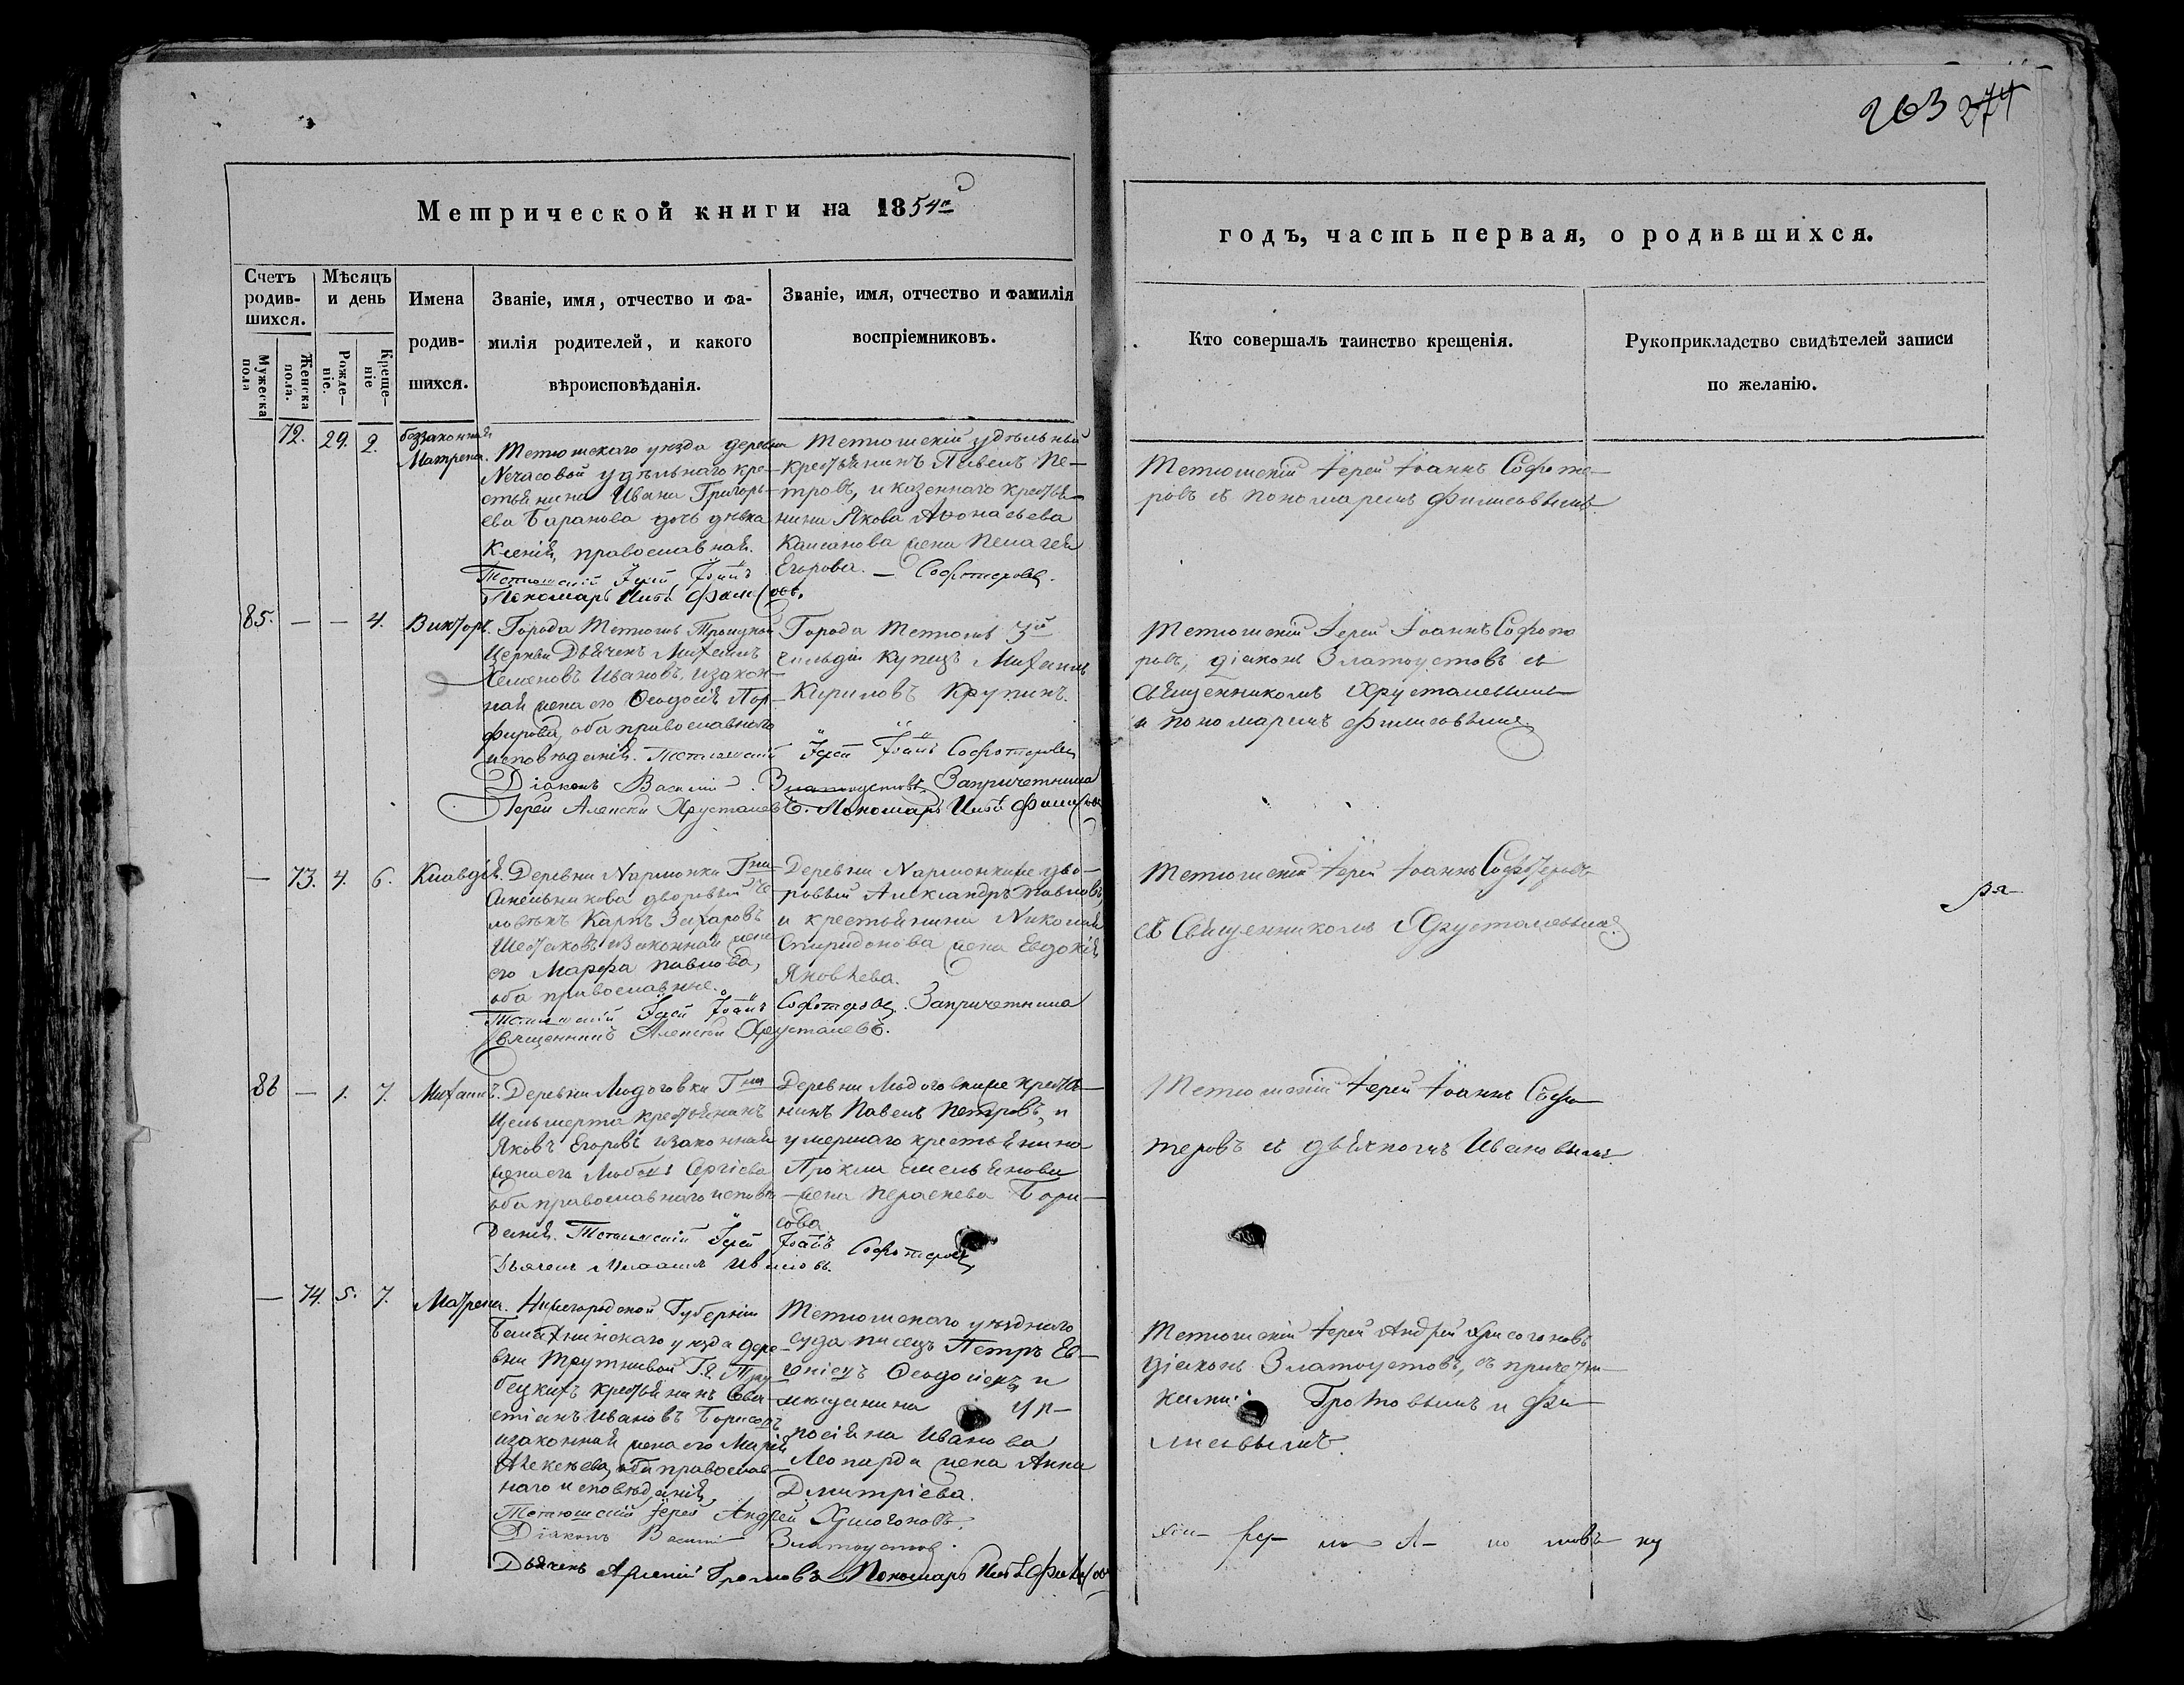 263 274
Метрической книги на 1854й
годъ, часть первая, о родившихся.
Счетъ родив-шихся.
Мужеска пола
Женска пола.
Мѣсяцъ и день
Рожде-ніе.
Креще-ніе
Имена
родив-
шихся.
Званіе, имя, отчество и фа-
милія родителей, и какого
вѣроисповѣданія.
Званіе, имя, отчество и фамилія
воспріемниковъ.
Кто совершалъ таинство крещенія.
Рукоприкладство свидѣтелей записи
по желанію.
72. 29. 2. беззаконная
Матрена.
Тетюшскаго уѣзда деревни
Нечасовой удѣльнаго кре-
стьянина Ивана Григорь-
ева Баранова дочь дѣвка
Ксенія, православная.
Тетюшскій Іерей Іоаннъ
Пономарь
Тетюшскій удѣльный
крестьянинъ Павелъ Пе-
тровъ, и казеннаго крестья-
нина Якова Аѳонасьева
жена Пелагея
Егорова. — Софотеровъ.
Тетюшскій Іерей Іоаннъ Софоте-
ровъ съ пономаремъ Филисовымъ.
85. — — 4. Викторъ.
Города Тетюшъ Троицкой
Церкви Дьячекъ Михаилъ
Семеновъ Ивановъ, и закон-
ная жена его Ѳеодосія Пор-
фирова, оба православнаго
исповѣданія. Тетюшскій Іерей Іоаннъ Софотеровъ
Діаконъ Василій Златоустовъ. Запричетника
Іерей Алексій Хрусталевъ. Пономарь
Города Тетюшъ 3й
гильдіи купецъ Михаилъ
Кириловъ Крупинъ.
Тетюшскій Іерей Іоаннъ Софоте
ровъ, діаконъ Златоустовъ съ
Священникомъ Хрусталевымъ
и пономаремъ Филисовымъ.
— 73. 4. 6. Клавдія.
Деревни Нармонки Гна
Синельникова дворовый че
ловѣкъ Карпъ Захаровъ
Шестаковъ и законная жена
его Марфа Павлова,
оба православные.
Тетюшскій Іерей Іоаннъ Софотеровъ. Запричетника
Священникъ Алексій Хрусталевъ.
Деревни Нармонки же дво-
ровый Александръ Павловъ,
и крестьянина Николая
Спиридонова жена Евдокія
Яковлева.
Тетюшскій Іерей Іоаннъ Софотеровъ
съ Священникомъ Хрусталевымъ.
ря-
86 — 1. 7. Михаилъ.
Деревни Людоговки Гна
крестьянинъ
Яковъ Егоровъ и законная
жена его Любовь Сергіева
оба православнаго исповѣ
данія. Тетюшскій Іерей Іоаннъ Софотеровъ
Дьячекъ Михаилъ Ивановъ.
Деревни Людоговки же крестья-
нинъ Павелъ Петровъ, и
умершаго крестьянина
Прокла Емельянова
жена Параскева Бори-
сова.
Тетюшскій Іерей Іоаннъ Софо-
теровъ съ дьячкомъ Ивановымъ.
— 74. 5. 7. Матрена.
Нижегородской Губерніи
Балахнинскаго уѣзда дере-
вни Трутневой Г.г. Тру-
бецкихъ крестьянинъ Сева-
стіанъ Ивановъ Борисовъ
и законная жена его Марія
Алексѣева, оба православ-
наго исповѣданія.
Тетюшскій Іерей Андрей Хрисогоновъ.
Діаконъ Василій Златоустовъ.
Дьячекъ Арсеній Громовъ Пономарь
Тетюшскаго уѣзднаго
суда писецъ Петръ Ев-
и
мѣщанина
Ивано ва
Леопарда жена Анна
Дмитріева.
Тетюшскій Іерей Андрей Хрисогоновъ
діаконъ Златоустовъ, съ причетни-
ками: Громовымъ и Фи-
лисовымъ.